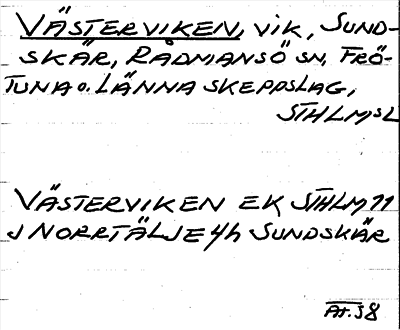 VÄSTERVIKEN, VIK, SUND-
SKÄR, RÅDMANSÖ SN, FRÖ-
TUNA O. LÄNNA SKEPPSLAG,
STHLMSL
VÄSTERVIKEN EK STHLM 11
J NORRTÄLJE 4h SUNDSKÄR